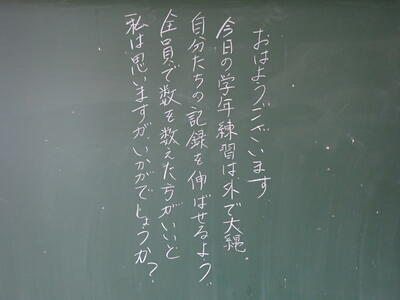 おはようございます
今日の学年練習は外で大縄。
自分たちの記録を伸ばせるよう、
全員で数を数えた方がいいと
私は思いますがいかがでしょうか?